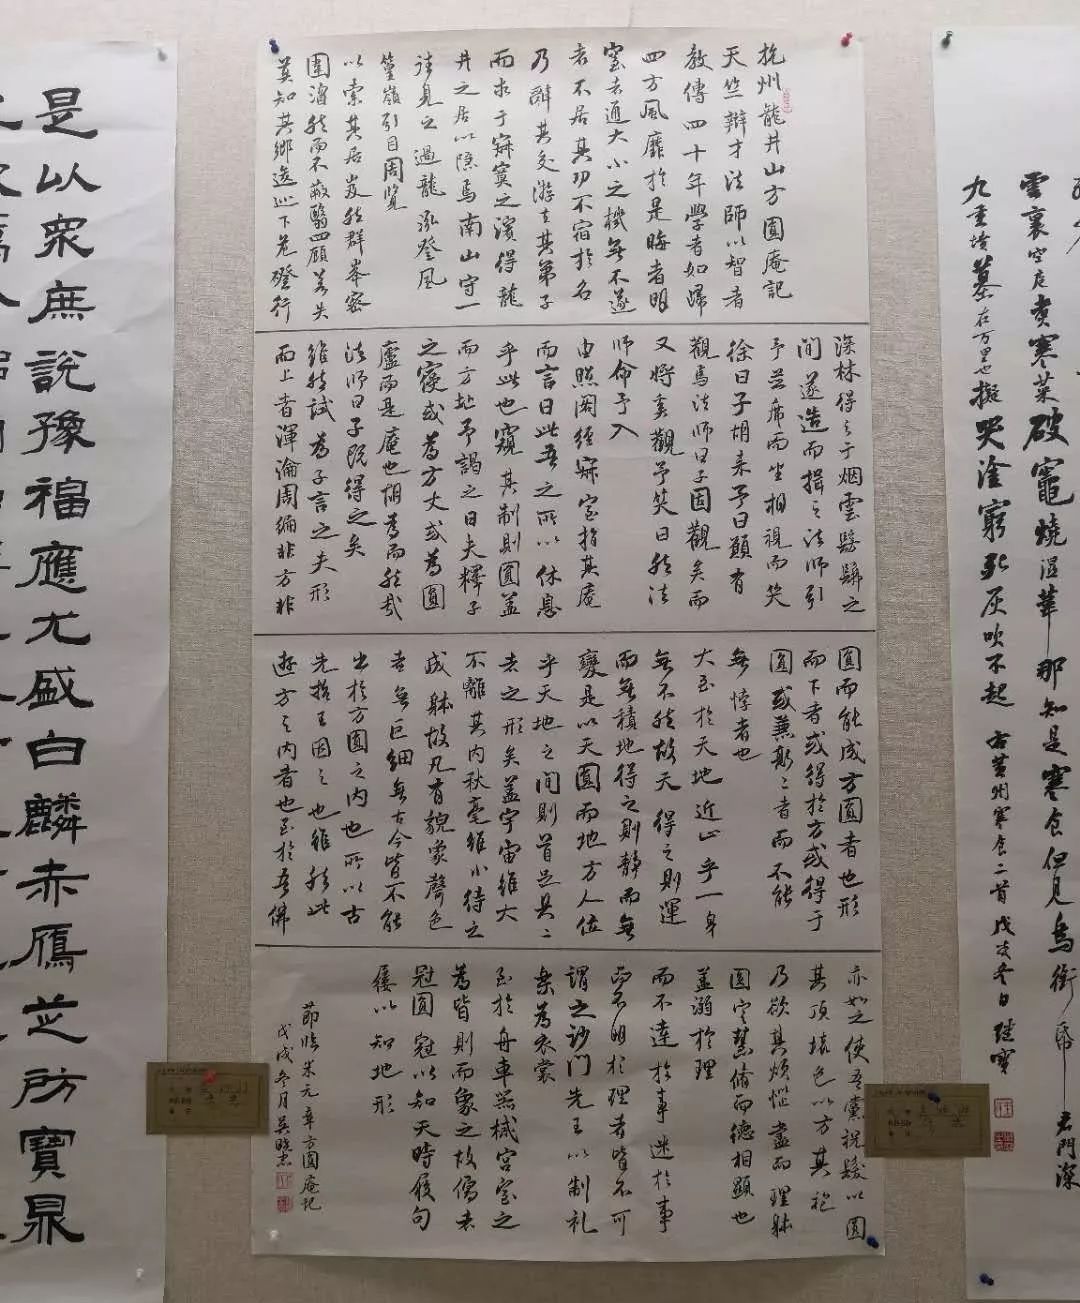 雲裏空庖煮寒菜破竈燒湿葦那知是寒食但見烏銜帋君門深
九重墳墓在万里也擬哭塗窮死灰吹不起 右黄州寒食二首 戊戌冬日
杭州龍井山方圓庵記
天竺辯才法師以智者
教傳四十年學者如歸
四方風靡於是晦者明
窒者通大小之機無不遂
者不居其功不宿於名
乃辭其交游去其弟子
而求于寂寞之濱得龍
井之居以隱焉南山守一
往見之過龍泓登風
篁嶺引目周覽
以索其居岌然群峯密
圍溶然而不蔽翳四顧若失
莫知其鄉逡巡下危磴行
深林得之于烟雲髣髴之
間遂造而揖之法師引
予並席而坐相視而笑
徐曰子胡來予曰願有
觀焉法師曰子固觀矣而
又將奚觀予笑曰然法
師命予入
由照閣經寂室指其庵
而言曰此吾之所以休息
乎此也窺其制則圓蓋
而方址予謁之曰夫釋子
之寢或為方丈或為圓
廬而是庵也胡為而然哉
法師曰子既得之矣
雖然試為子言之夫形
而上者渾淪周徧非方非
圓而能成方圓者也形
而下者或得於方或得于
圓或兼斯二者而不能
無悖者也
大至於天地近止乎一身
無不然故天得之則運
而無積地得之則靜而無
變是以天圓而地方人位
乎天地之間則首足具二
者之形矣蓋宇宙雖大
不離其內秋毫雖小待之
成躰故凡有貌象聲色
者無巨細無古今皆不能
出於方圓之內也所以古
先哲王因之也雖然此
遊方之內者也至於吾佛
亦如之使吾黨祝髮以圓
其頂壞色以方其袍
乃欲其煩惱盡而理躰
圓定慧脩而德相顯也
蓋溺於理
而不達於事迷於事
而不明於理者皆不可
謂之沙門先王以制礼
樂為衣裳
至於舟車器械宮室之
為皆則而象之故儒者
冠圓冠以知天時履句
屨以知地形
節臨米元章方圓庵記
戊戌冬月吳曉杰
是以眾庶說豫福應尤盛白麟赤鴈芝房寶鼎